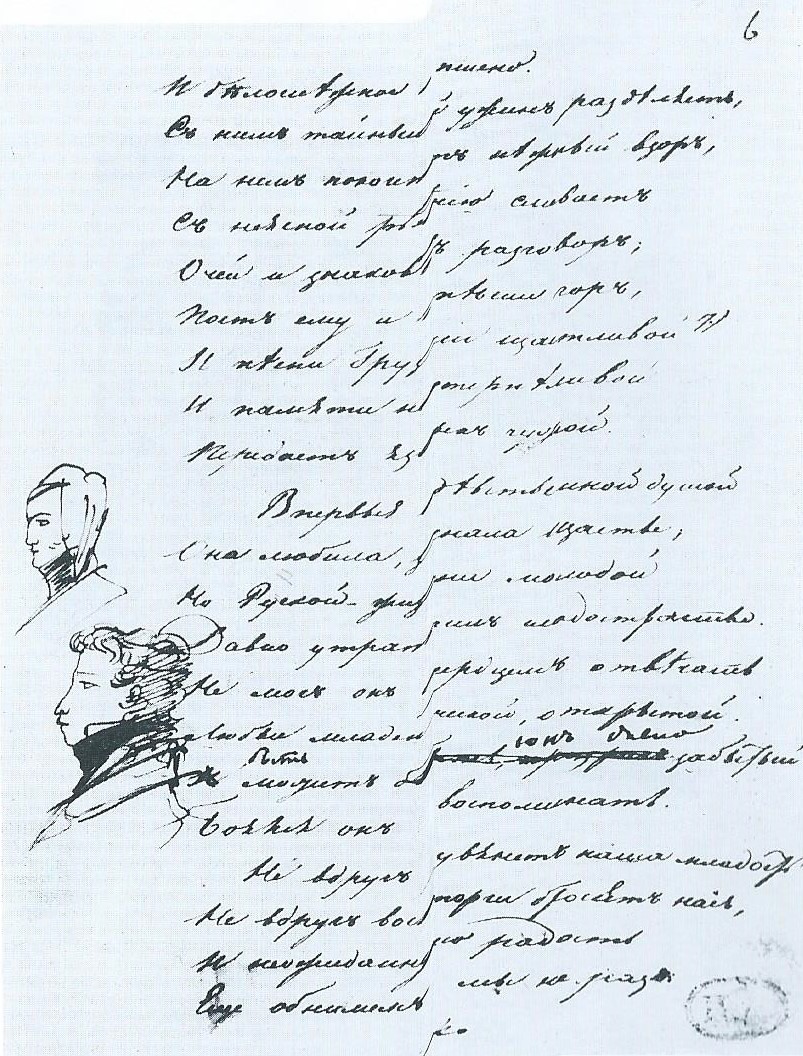 6
И бѣлоснѣжное пшено.
Съ нимъ тайный ужинъ раздѣляетъ,
На нёмъ покоитъ нѣжный взоръ,
Съ неясной рѣчію сливаетъ
Очей и знаковъ разговоръ;
Поетъ ему и пѣсни горъ,
И пѣсни Грузіи щастливой 7)
И памяти нетерпѣливой
Передаетъ языкъ чужой.
Впервые дѣвственной душой
Она любила, знала щастье;
Но Руской жизни молодой
Давно утратилъ сладострастье.
Не могъ онъ сердцемъ отвѣчать
Любви младенческой, открытой.
Быть можетъ сонъ забытый
Боялся онъ воспоминать.
Не вдругъ увянетъ наша младость
Не вдругъ восторги бросятъ насъ,
И неожиданную радость
Еще обнимемъ мы не разъ